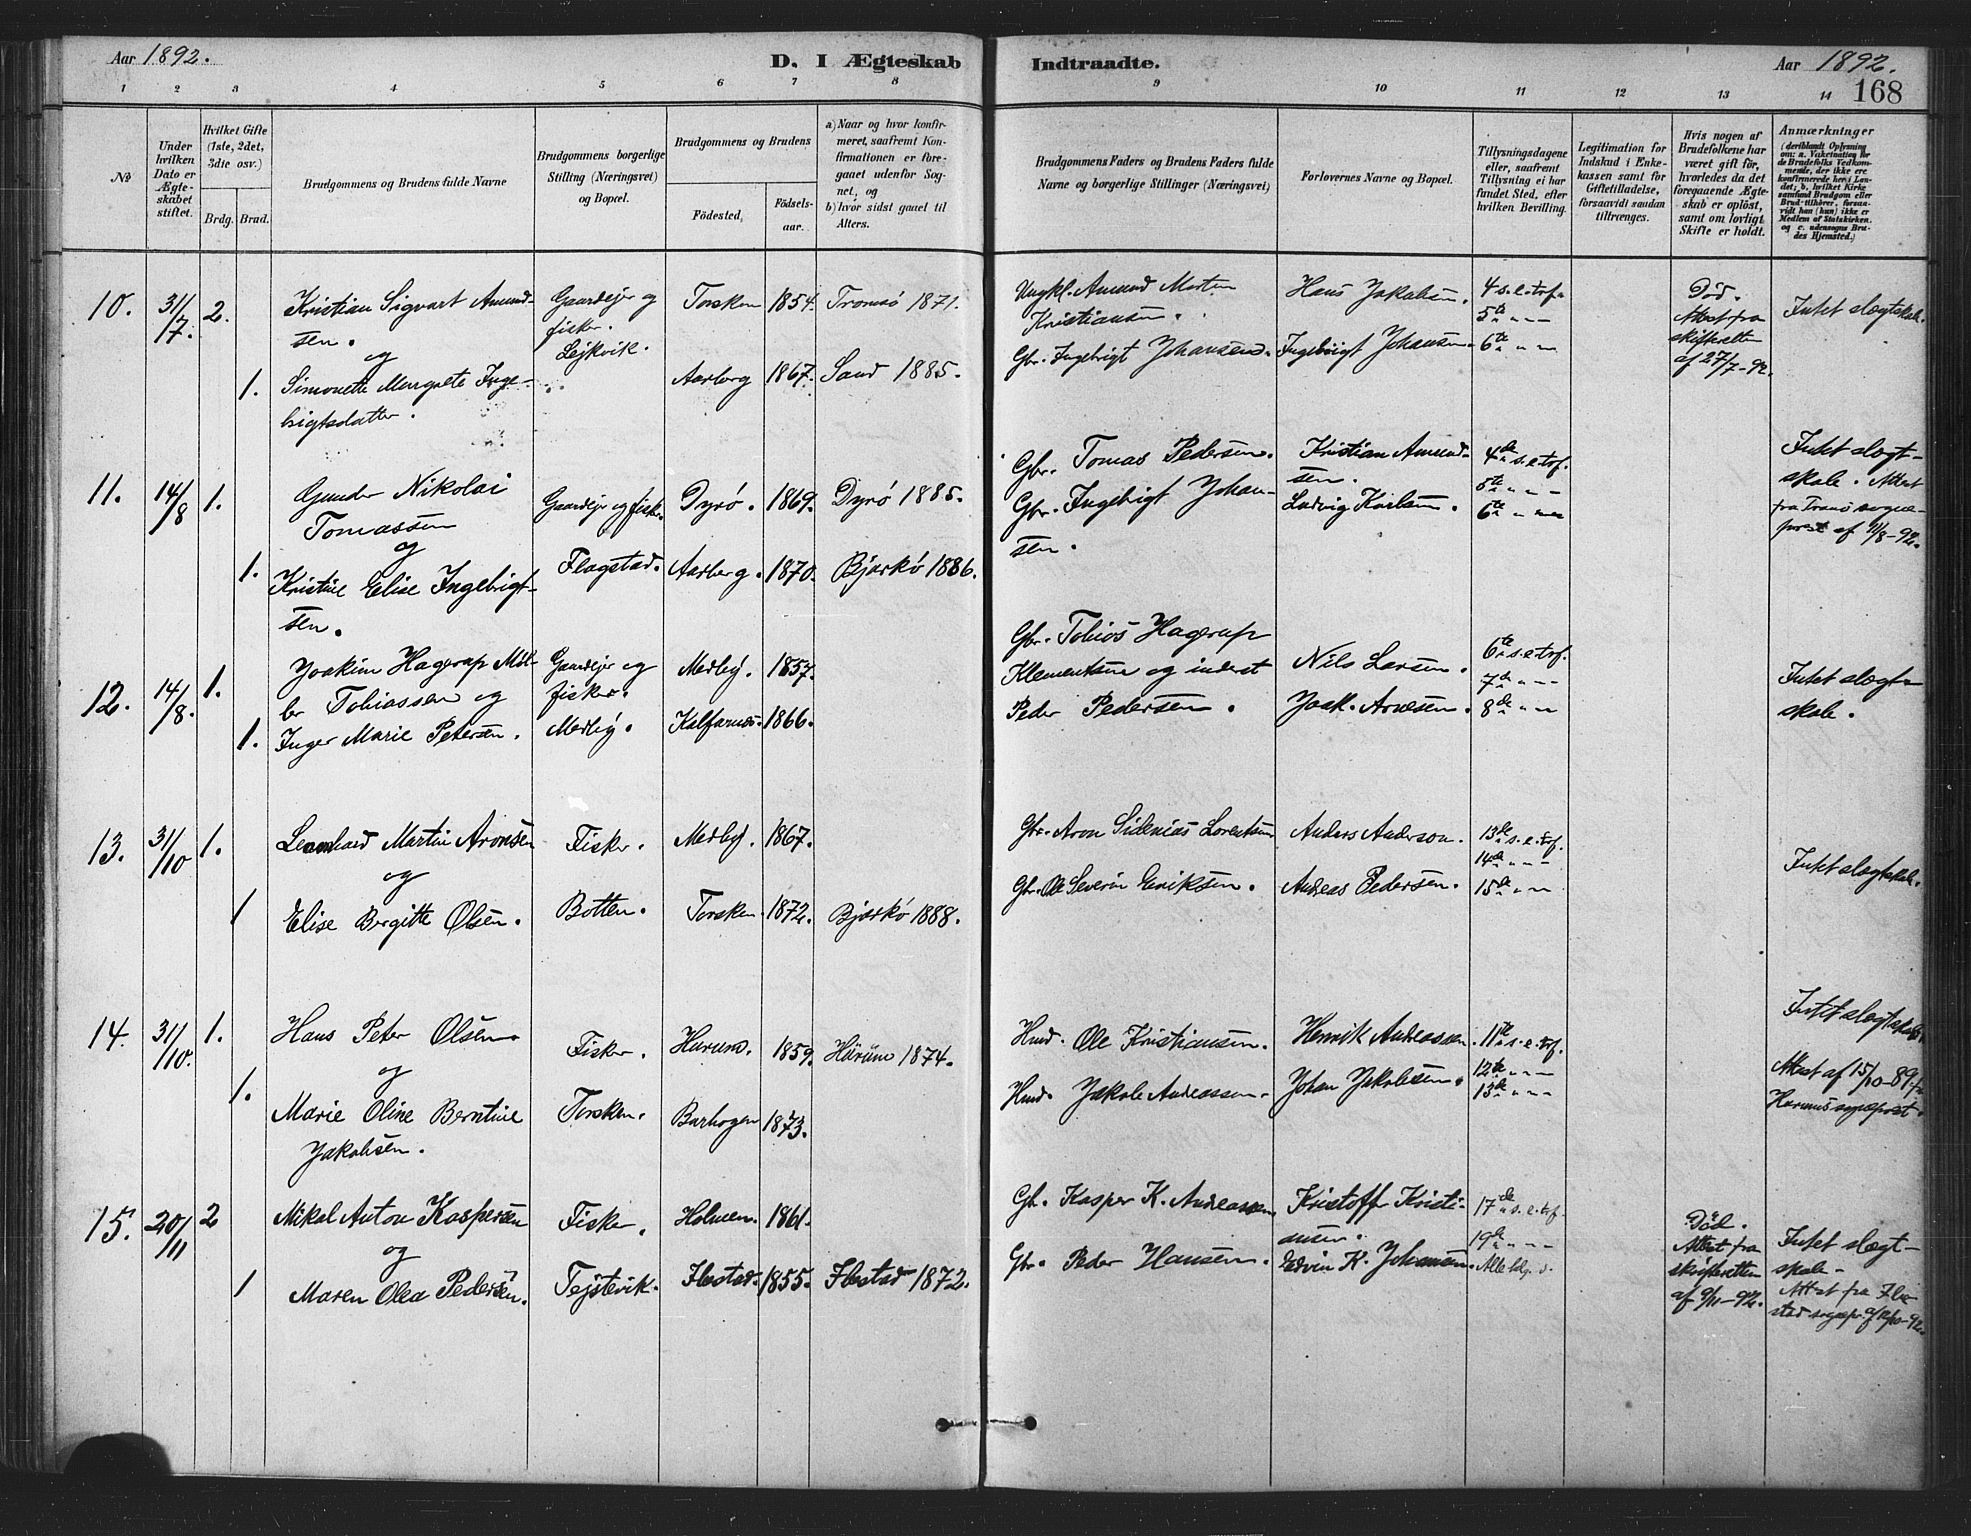 Aar 1892.
D. I Ægteskab Indtraadte.
Aar 1892.
168
1 2 3 4 5 6 7 8 9 10 11 12 13 14
No
Under hvilken Dato er Ægteskabet stiftet.
Hvilket Gifte (1ste, 2det, 3die osv.)
Brdg. Brud.
Brudgommens og Brudens fulde Navne
Brudgommens borgerlige Stilling (Næringsvei) og Bopæl.
Brudgommens og Brudens
Fødested,
Fødselsaar.
a) Naar og hvor konfirmeret, saafremt Konfirmationen er foregaaet udenfor Sognet, og
b) hvor sidst gaaet til Alters.
Brudgommens Faders og Brudens Faders fulde Navne og borgerlige Stillinger (Næringsvei)
Forlovernes Navne og Bopæl.
Tillysningsdagene eller, saafremt Tillysning ei har fundet Sted, efter hvilken Bevilling.
Legitimation for Indskud i Enkekassen samt for Giftetilladelse, forsaavidt saadan tiltrænges.
Hvis nogen af Brudefolkene har været gift før, hvorledes da det foregaaende Ægteskab er opløst, samt om lovligt Skifte er holdt.
Anmærkninger (deriblandt Oplysning om: a. Vakcination for de Brudefolks Vedkommende, der ikke ere konfirmerede her i Landet; b. hvilket Kirkesamfund Brudgom eller Brud tilhører, forsaavidt han (hun) ikke er Medlem af Statskirken, og c. udensogns Brudes Hjemsted.)
10. 31/7. 2. Kristian Sigvart Amundsen. Gaardejer og fisker. Lejkvik. Torsken 1854. Tromsø 1871.
og
1. Simonette Margrete Ingebrigtsdatter. Aarberg 1867. Sand 1885.
Ungkl. Amund Martin Kristiansen. Hans Jakobsen. 4 s. e. tref.
5te " " "
Gbr. Ingebrigt Johansen. Ingebrigt Johansen. 6te " " "
Død. Attest fra skifteretten af 27/7-92.
Intet slægtskab.
11. 14/8 1. Gunder Nikolai Tomassen Gaardejer og fisker Dyrø. 1869. Dyrø 1885.
og
1. Kristine Elise Ingebrigtsen. Flagstad. Aarberg. 1870. Bjarkø 1886.
Gbr. Tomas Pedersen. Kristian Amundsen. 4de s. e. tref.
5te " " "
Gbr. Ingebrigt Johansen. Ludvig Karlsen. 6te " " "
Intet slægtskab. Attest fra Tranø sognepræst af 11/8-92.
12. 14/8. 1. Joakim Hagerup Tobiassen og Gaardejer og fisker. Medby. 1857.
1. Inger Marie Petersen. Medby. Kalfarnes. 1866.
Gbr. Tobias Hagerup Klementsen og inderst Nils Larsen. 6te s. e. tref.
7de " " "
Peder Pedersen. Joak. Arnesen. 8de " " "
Intet slægtskab.
13. 31/10 1. Leonhard Martin Aronsen Fisker. Medby. 1867.
og
1 Elise Bergitte Olsen. Botten. Torsken. 1872. Bjarkø 1888.
Gbr. Aron Sidenias Lorentsen Anders Anderson. 13de s. e. tref.
14de " " "
Gbr. Ole Severin Eriksen. Andreas Pedersen. 15de " " "
Intet slægtskab.
14. 31/10. 1. Hans Peter Olsen Fisker. Harum. 1859. Harum 1874.
og
1. Marie Oline Berntine Jakobsen. Torsken. Barhogen 1873.
Hmd. Ole Kristiansen. Henrik Andreassen. 11te s. e. tref.
12te " " "
Hmd. Jakob Andreassen. Johan Jakobsen. 13de " " "
Intet slægtskab.
Attest af 15/10-89 fra Harums sognepræst.
15. 20/11 2 Mikal Anton Kaspersen Fisker. Holmen. 1861.
og
1 Maren Olea Pedersen. Tejstevik. Ibestad. 1855. Ibestad 1872.
Gb. Kasper K. Andreassen Kristoff Kristiansen. 17de s. e. tref.
19de " " "
Gbr. Peder Hansen. Edvin K. Johansen.
Død. Attest fra skifteretten af 9/11-92.
Intet slægtskab. Attest fra Ibestad sognepr. af 12/10-92.